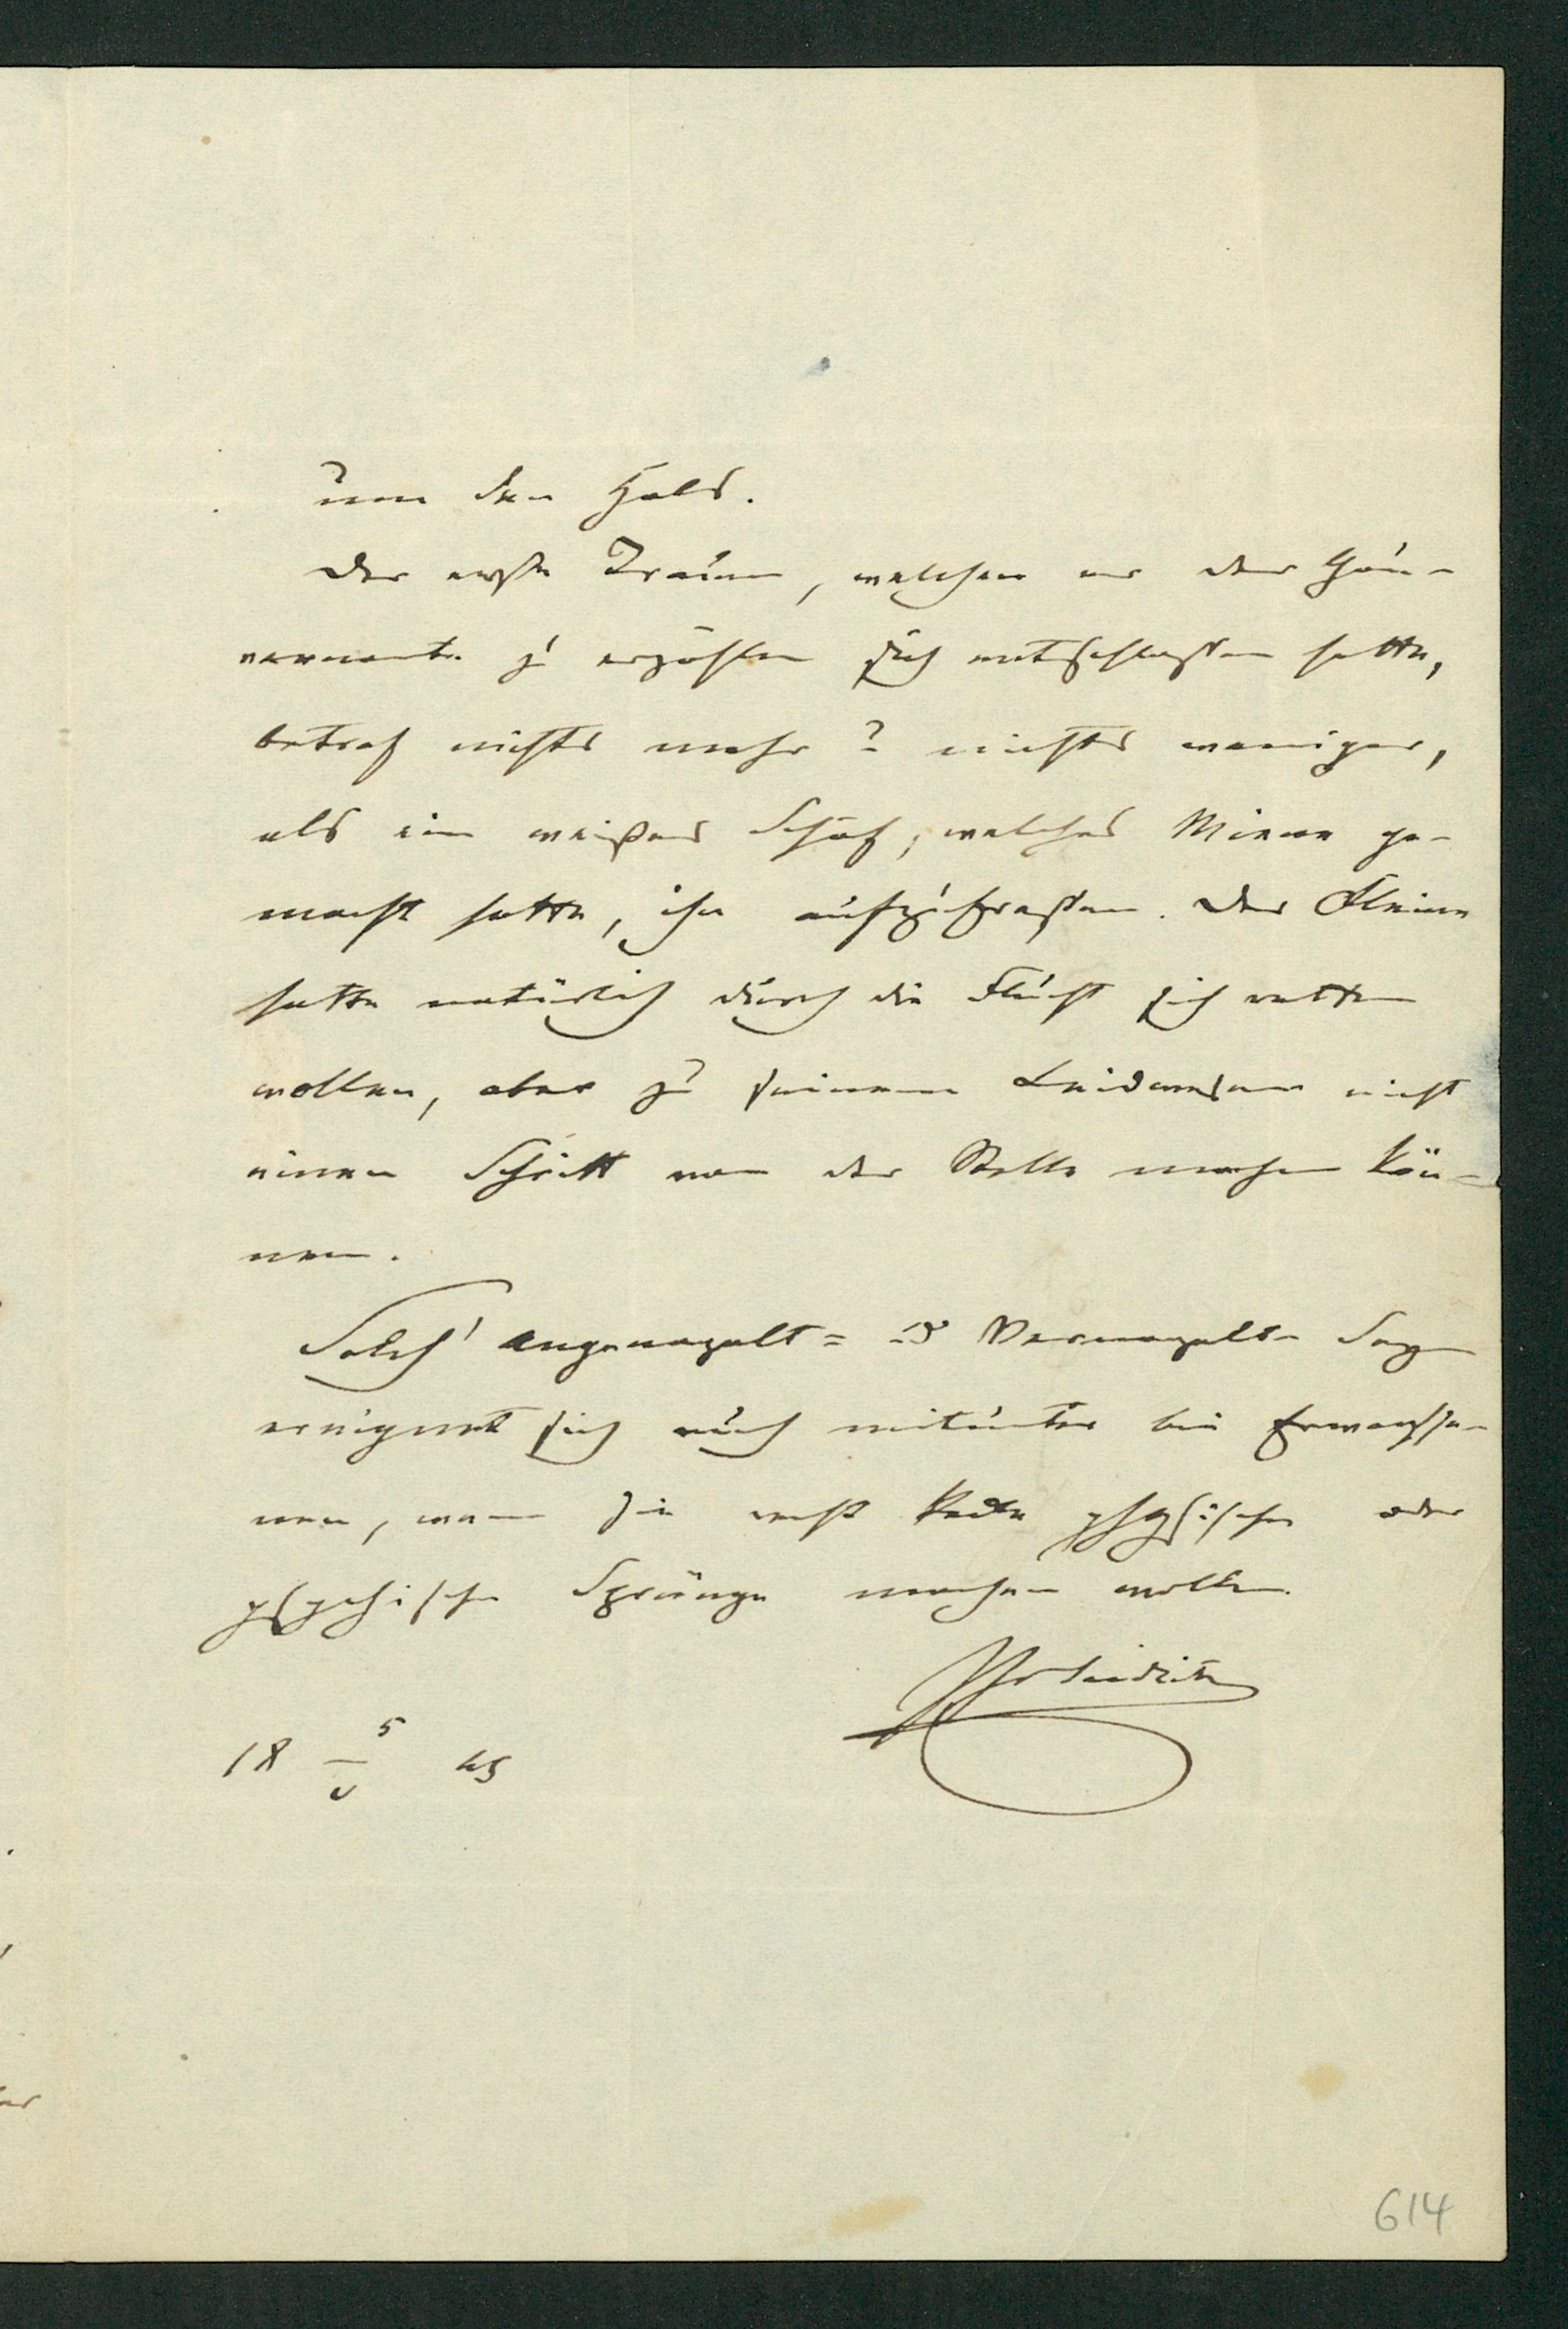 um den Hals.
Der erste Traum, welchen er der Gou-
vernante zu erzählen sich entschlossen hatte,
betraf nichts mehr u nichts weniger,
als ein weißes Schaf, welches Miene ge-
macht hatte, ihn aufzufressen. Der Kleine
hatte natürlich durch die Flucht sich retten
wollen, aber zu seinem Leidwesen nicht
einen Schritt von der Stelle machen kön-
nen.
Solch' Angenagelt- und Vernagelt-
ereignet sich auch mitunter bei Erwachse-
nen, wenn sie recht kecke physische oder
psychische Sprünge machen wollen.
18 5 45
614